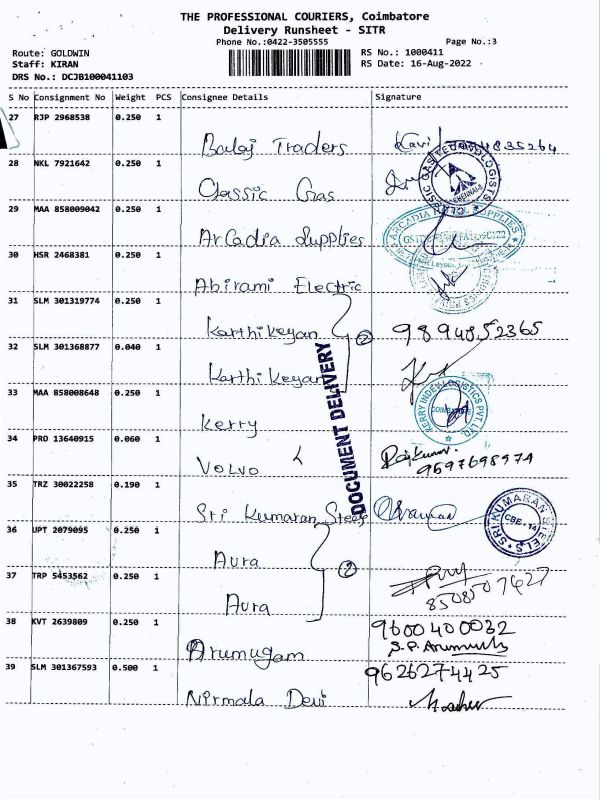 THE PROFESSIONAL COURIERS, Coimbatore
Delivery Runsheet - SITR
Phone No.:0422-3505555 Page No.:3
Route: GOLDWIN RS No.: 1000411
Staff: KIRAN RS Date: 16-Aug-2022
DRS No.: DCJB100041103
S No Consignment No Weight PCS Consignee Details Signature
27 RJP 2968538 0.250 1
Balaj Traders
28 NKL 7921642 0.250 1
Classic Gas
29 MAA 858009042 0.250 1
Arcadia Supplies
ARCADIA SUPPLIES
30 HSR 2468381 0.250 1
Abirami Electric
31 SLM 301319774 0.250 1
Karthikeyan 2 9894852365
32 SLM 301368877 0.040 1
Karthikeyan
DOCUMENT DELIVERY
33 MAA 858008648 0.250 1
Kerry
KERRY INDEV LOGISTICS PVT. LTD.
COIMBATORE
34 PRO 13640915 0.060 1
Volvo Rajkumar.
9597698974
35 TRZ 30022258 0.190 1
Sri Kumaran Steels
SRI KUMARAN STEELS
CBE-14
36 UPT 2079095 0.250 1
Aura 2
37 TRP 5453562 0.250 1
Aura 8508507627
38 KVT 2639809 0.250 1 9600400032
Arumugam S.P.
39 SLM 301367593 0.500 1 9626274425
Nirmala Devi